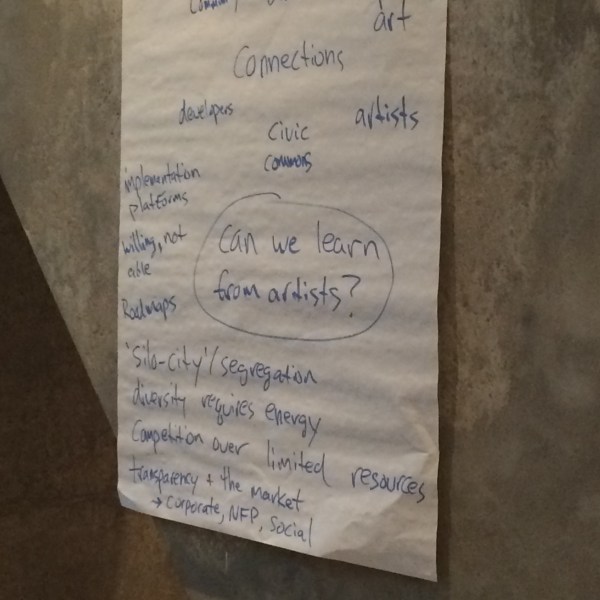 art
Connections
developers
artists
Civic
Commons
implementation
platforms
willing, not
able
Roadmaps
Can we learn
from artists?
'Silo-city'/segregation
diversity requires energy
Competition over limited resources
transparency + the market
→ corporate, NFP, Social